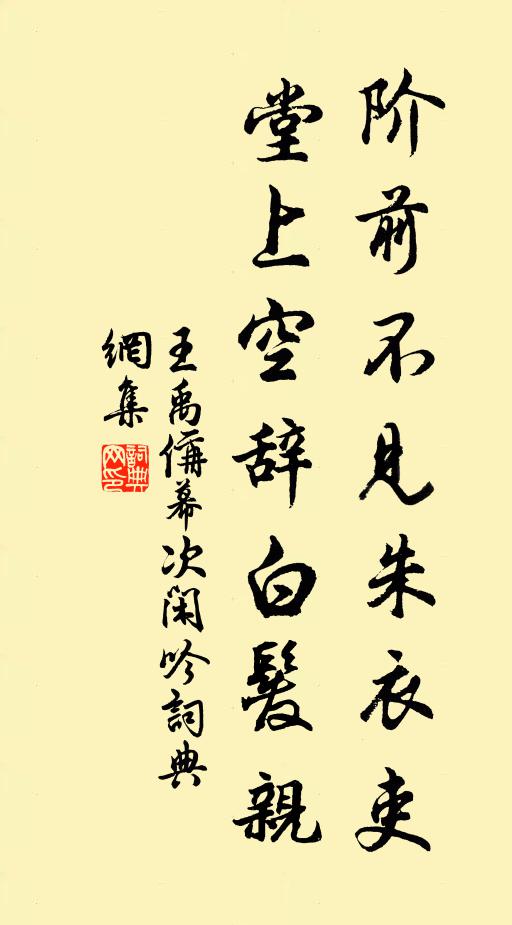 阶前不见朱衣吏
堂上空辞白髮親
王禹偁幕次闲吟詞典
網集
詞典
网印